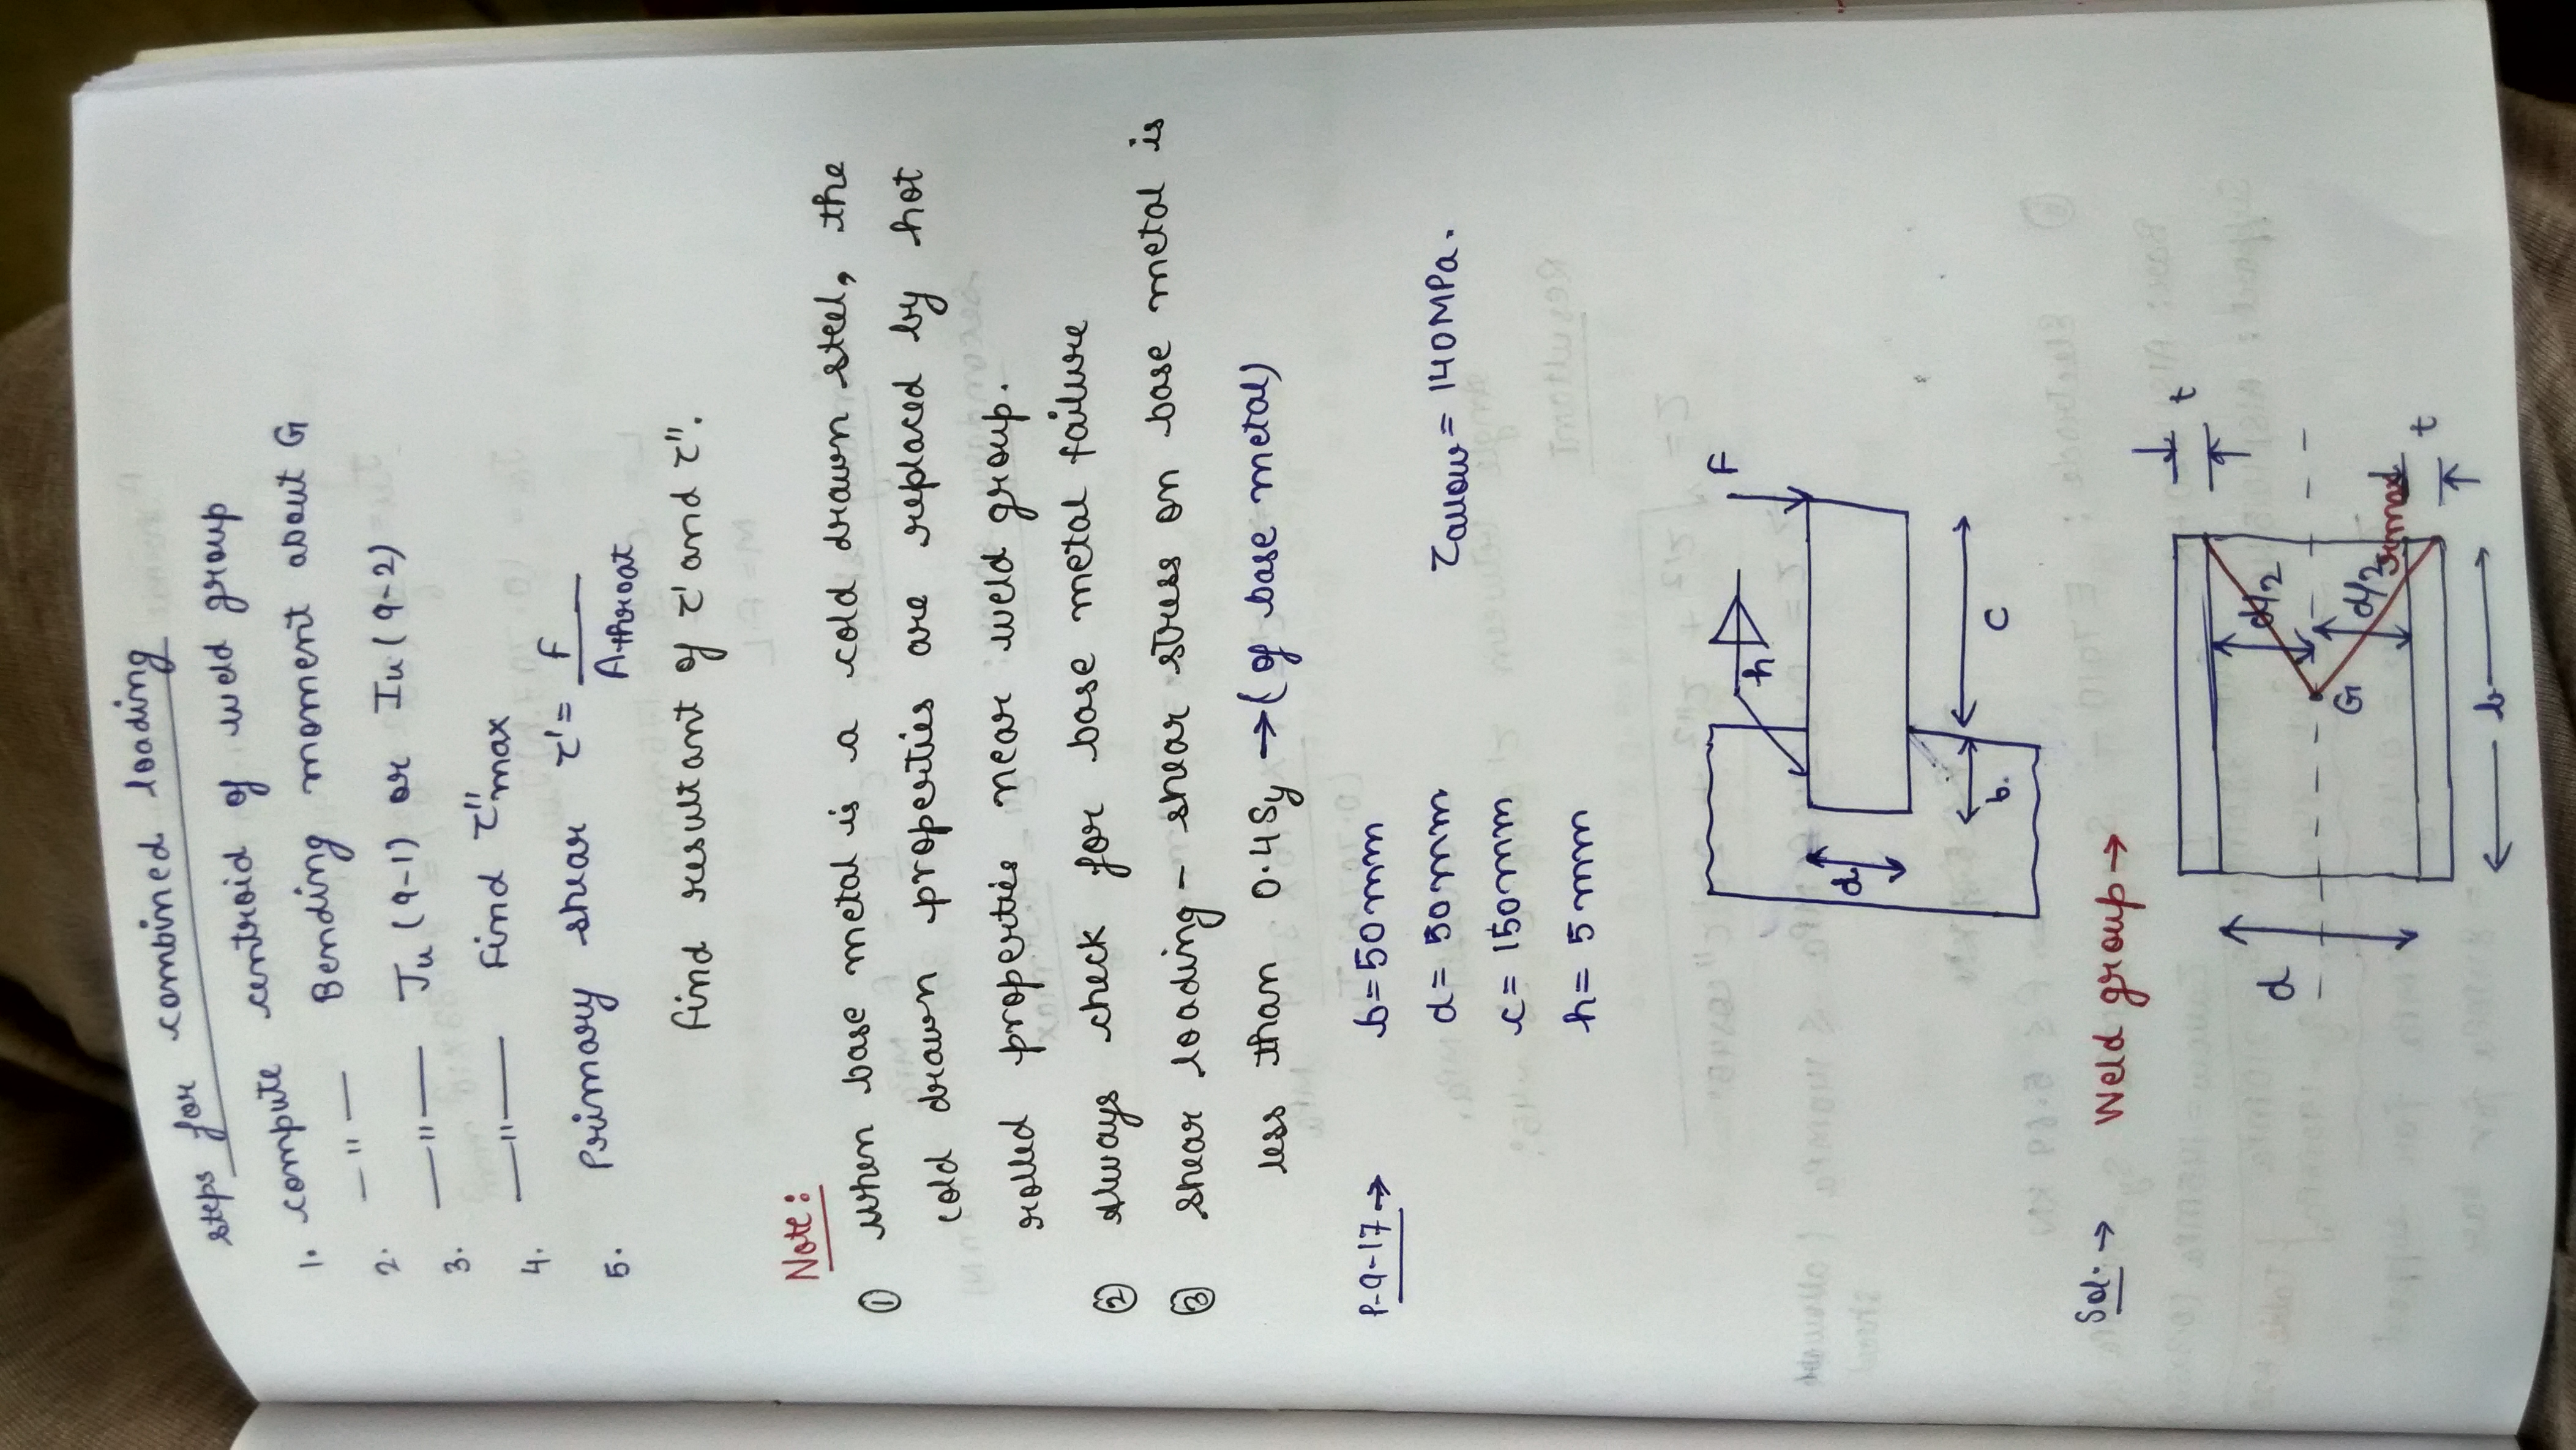 steps for combined loading
1. compute centroid of weld group
2. —"— Bending moment about G
3. —"— Ju (9-1) or Iu (9-2)
4. —"— Find τ"max
5. Primary shear τ' = F / Athroat
Find resultant of τ' and τ".
Note:
① When base metal is a cold drawn steel, the
cold drawn properties are replaced by hot
rolled properties near weld group.
② Always check for base metal failure
③ shear loading - shear stress on base metal is
less than 0.4Sy → (of base metal)
P-9-17 → b = 50mm
d = 50mm τallow = 140MPa.
c = 150mm
h = 5mm
F
h
d
b. c
Sol. → Weld group →
t
d/2
d
G
d/2 rmax
t
b